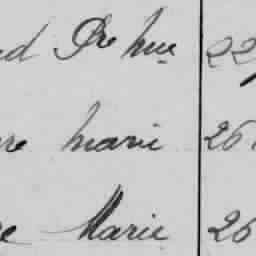 Pre hue 22
marie 26
Marie 26